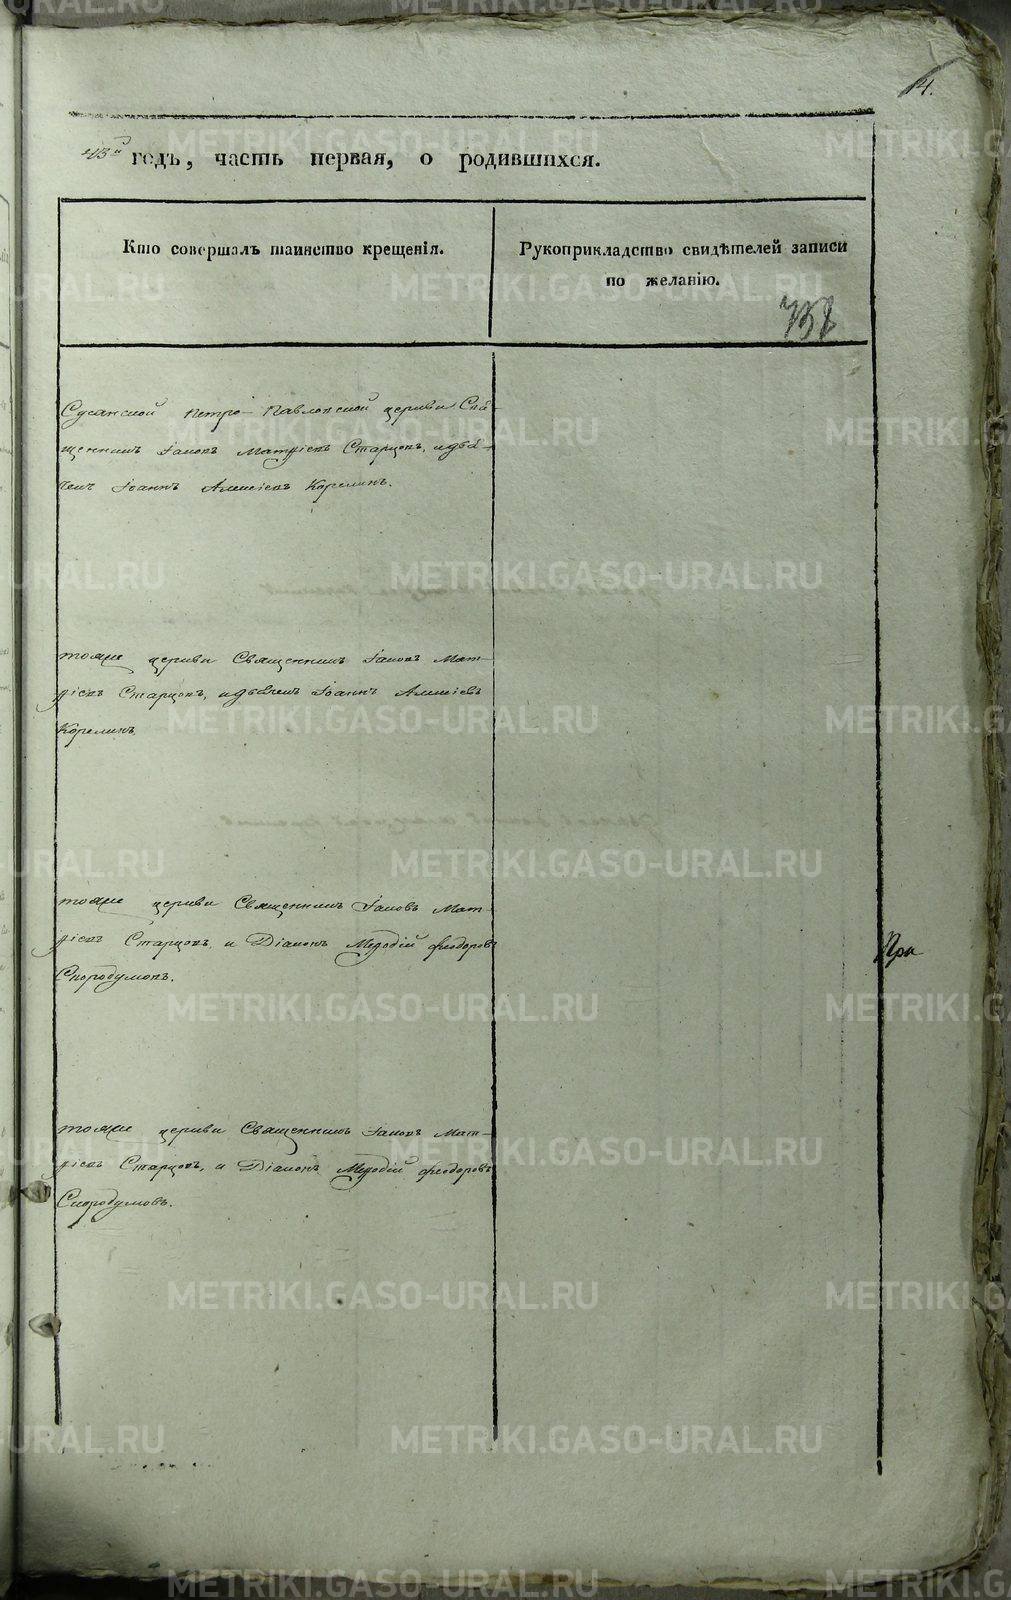 14.
43й годъ, часть первая, о родившихся.
Кто совершалъ таинство крещенія.
Рукоприкладство свидѣтелей записи
по желанію.
Сусанской Петро-Павловской церкви Свя-
щенникъ Іаковъ Матѳіевъ Старцовъ, и дья-
чекъ Іоаннъ Алексіевъ Корелинъ.
тояже церкви Священникъ Іаковъ Мат-
ѳіевъ Старцовъ, и дьячекъ Іоаннъ Алексіевъ
Корелинъ
тояже церкви Священникъ Іаковъ Мат-
ѳіевъ Старцовъ, и Діаконъ Меѳодій Ѳеодоровъ
Скородумовъ.
При
тояже церкви Священникъ Іаковъ Мат-
ѳіевъ Старцовъ, и Діаконъ Меѳодій Ѳеодоровъ
Скородумовъ.
METRIKI.GASO-URAL.RU